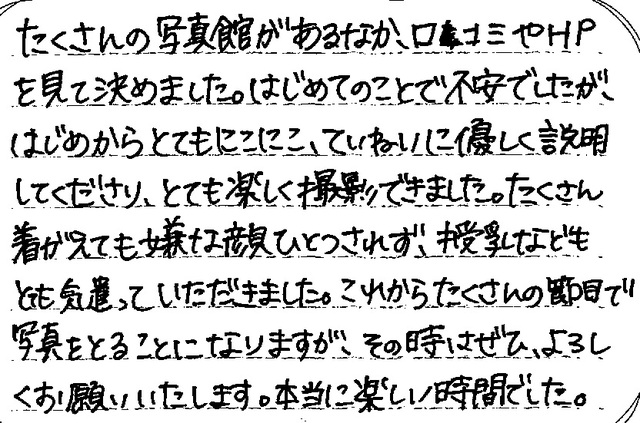 たくさんの写真館があるなか、口コミやHP
を見て決めました。はじめてのことで不安でしたが、
はじめからとてもにこにこ、ていねいに優しく説明
してくださり、とても楽しく撮影できました。たくさん
着がえても嫌な顔ひとつされず、授乳なども
とても気遣っていただきました。これからたくさんの節目で
写真をとることになりますが、その時はぜひ、よろし
くお願いいたします。本当に楽しい時間でした。